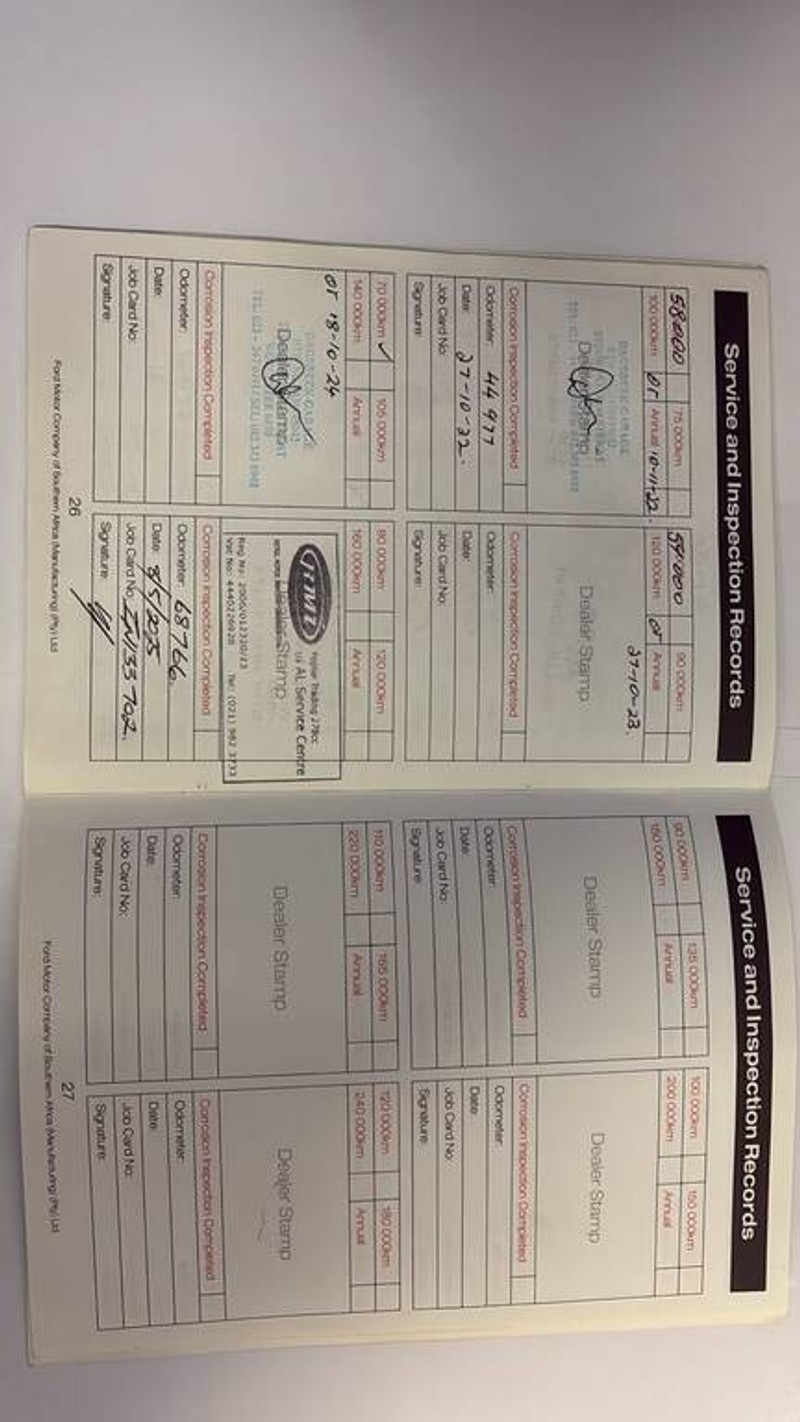 Service and Inspection Records
58000
75 000km
100 000km
or
Annual
10-11-22.
Dealer Stamp
Corrosion Inspection Completed
Odometer: 44 977
Date: 27-10-22.
Job Card No:
Signature:
54000
90 000km
120 000km
or
Annual
27-10-23.
Dealer Stamp
Corrosion Inspection Completed
Odometer:
Date:
Job Card No:
Signature:
70 000km ✓
105 000km
140 000km
Annual
or 18-10-24
Dealer Stamp
Corrosion Inspection Completed
Odometer:
Date:
Job Card No:
Signature:
80 000km
120 000km
160 000km
Annual
Trading 278cc
AL Service Centre
Dealer Stamp
Reg No: 2006/012320/23 Tel: (021) 982 3733
Vat No: 4440226928
Corrosion Inspection Completed
Odometer: 68766.
Date: 8/5/2025
Job Card No: IN133702.
Signature:
26
Ford Motor Company of Southern Africa (Manufacturing) (Pty) Ltd
Service and Inspection Records
90 000km
135 000km
180 000km
Annual
Dealer Stamp
Corrosion Inspection Completed
Odometer:
Date:
Job Card No:
Signature:
100 000km
150 000km
200 000km
Annual
Dealer Stamp
Corrosion Inspection Completed
Odometer:
Date:
Job Card No:
Signature:
110 000km
165 000km
220 000km
Annual
Dealer Stamp
Corrosion Inspection Completed
Odometer:
Date:
Job Card No:
Signature:
120 000km
180 000km
240 000km
Annual
Dealer Stamp
Corrosion Inspection Completed
Odometer:
Date:
Job Card No:
Signature:
27
Ford Motor Company of Southern Africa (Manufacturing) (Pty) Ltd